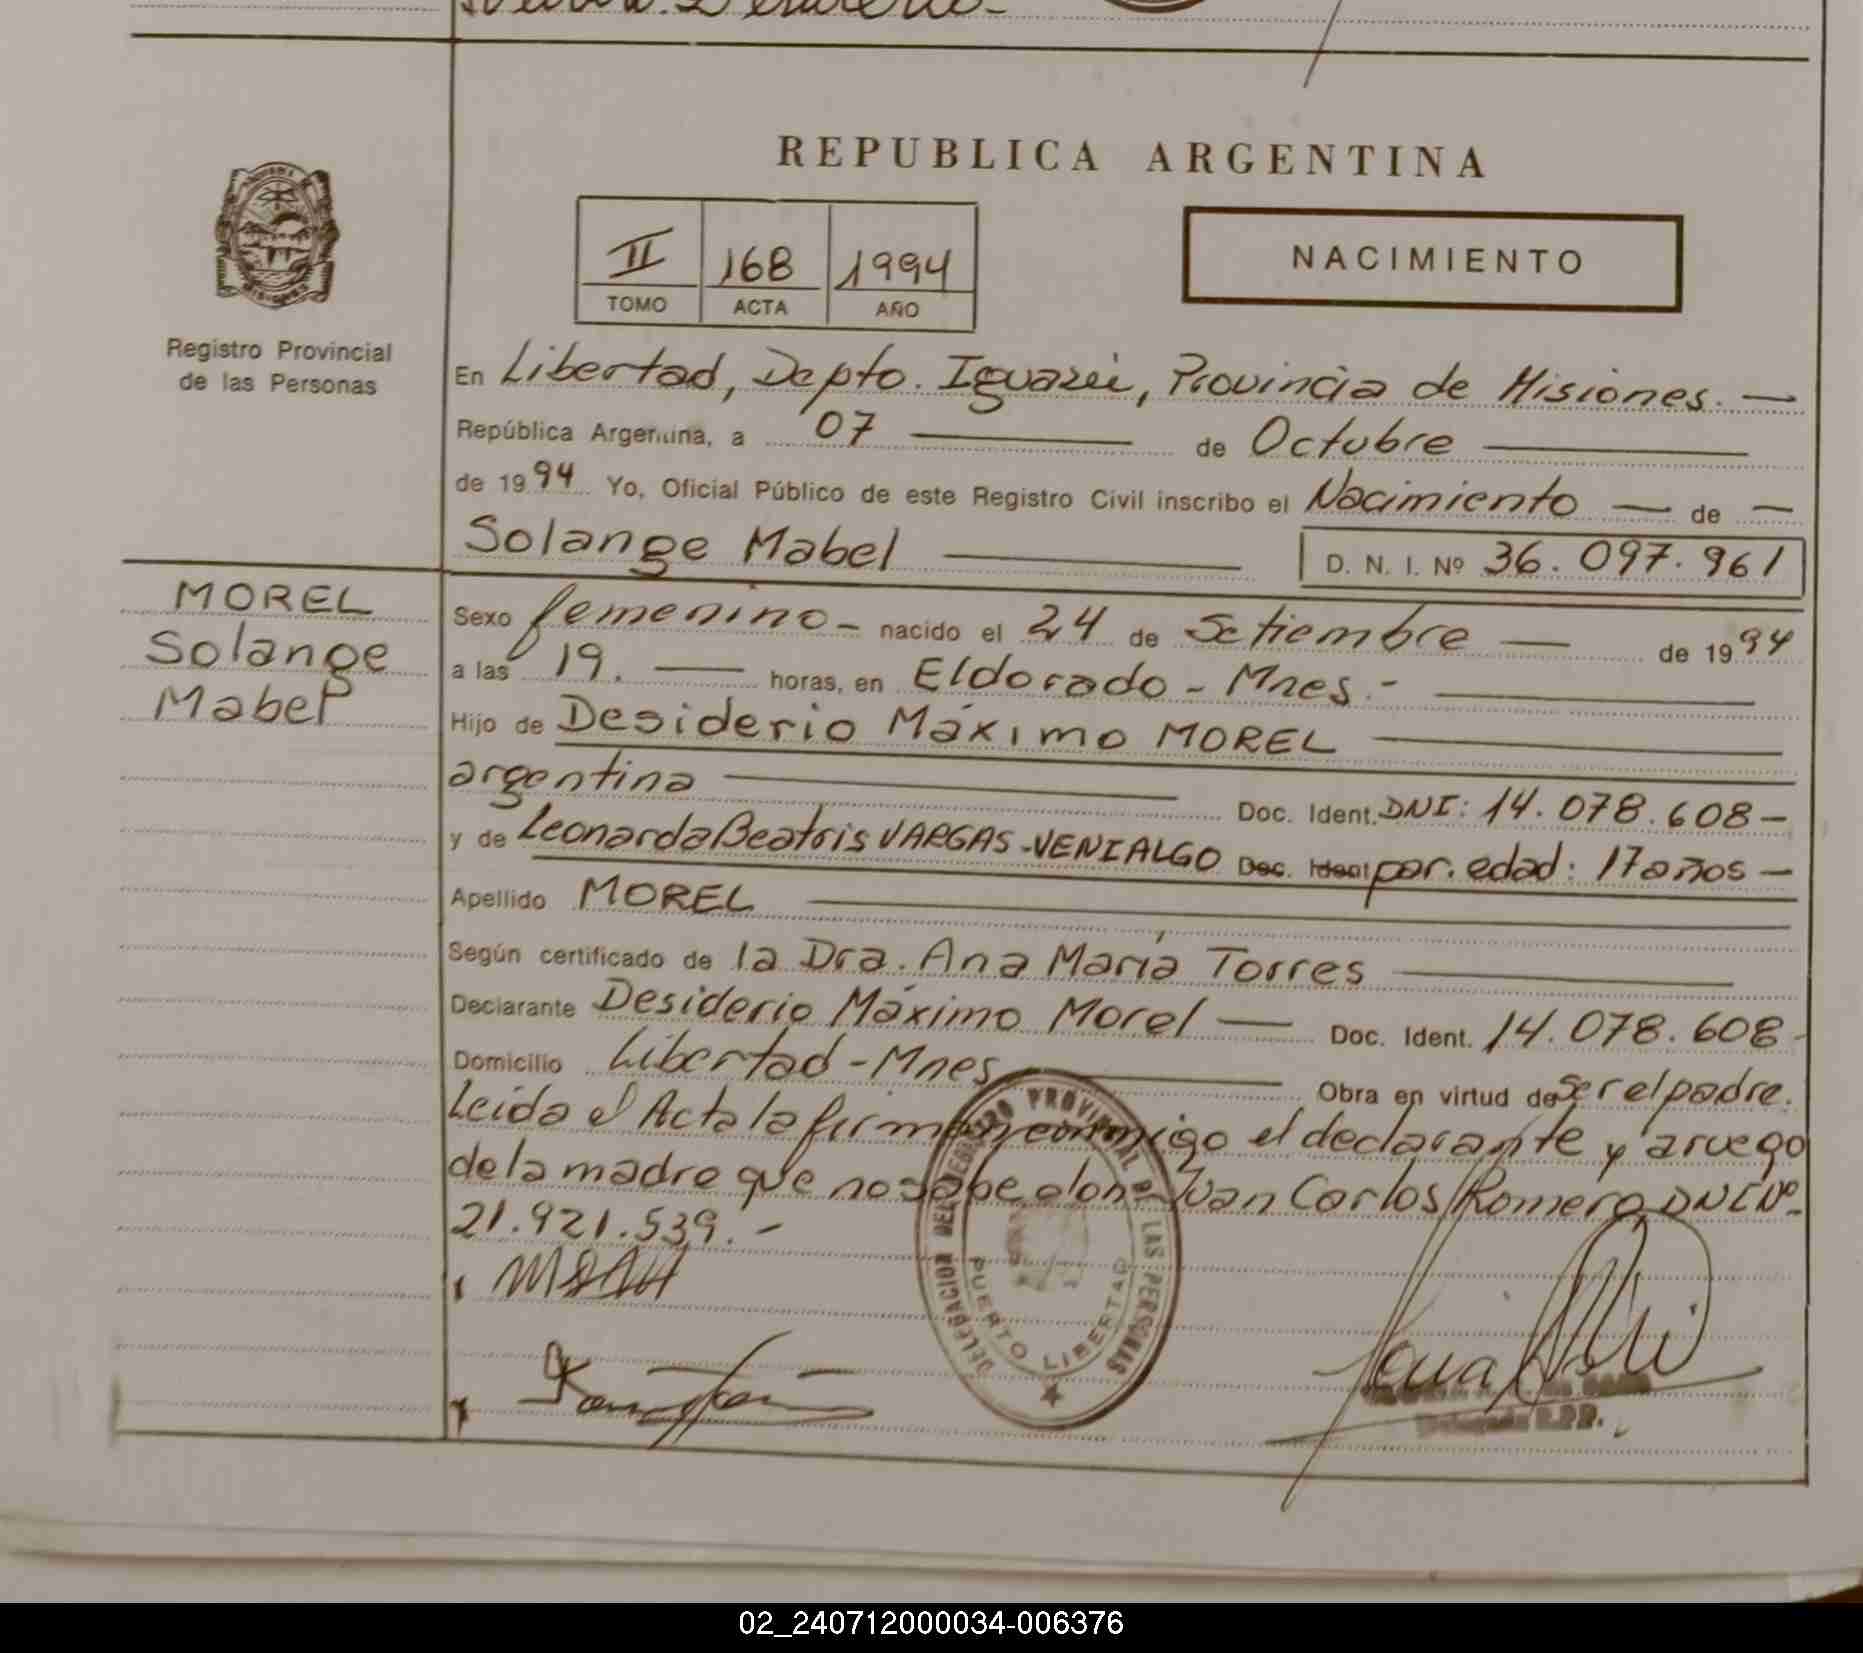 REPUBLICA ARGENTINA
II 168 1994
TOMO ACTA AÑO
NACIMIENTO
Registro Provincial
de las Personas
En Libertad, Depto. Iguazú, Provincia de Misiones. —
República Argentina, a 07 — de Octubre —
de 1994 Yo, Oficial Público de este Registro Civil inscribo el Nacimiento — de —
Solange Mabel — D. N. I. Nº 36.097.961
MOREL
Solange
Mabel
Sexo femenino - nacido el 24 de Setiembre — de 1994
a las 19. — horas, en Eldorado - Mnes.- —
Hijo de Desiderio Máximo MOREL —
argentina — Doc. Ident. DNI: 14.078.608 -
y de Leonarda Beatris VARGAS - VENIALGO Doc. Ident por. edad: 17 años -
Apellido MOREL —
Según certificado de la Dra. Ana María Torres —
Declarante Desiderio Máximo Morel — Doc. Ident. 14.078.608 -
Domicilio Libertad - Mnes — Obra en virtud de Ser el padre.
Leida el Acta la firman conmigo el declarante y a ruego
de la madre que no sabe Juan Carlos Romero, DNI Nº
21.921.539. -
DELEGACION DEL REGISTRO PROVINCIAL DE LAS PERSONAS
PUERTO LIBERTAD
02_240712000034-006376